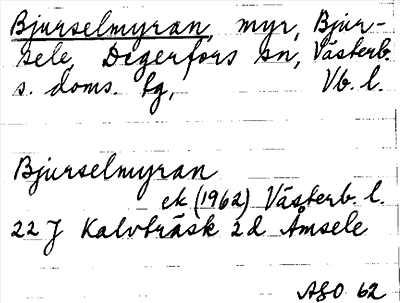 Bjurselmyran, myr, Bjur-
sele, Degerfors sn, Västerb.
s. doms. tg, Vb. l.
Bjurselmyran
ek (1962) Västerb. l.
22 J Kalvträsk 2d Åmsele
ASO 62